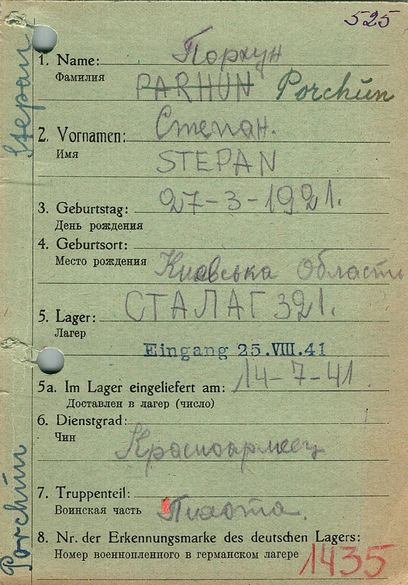 525
1. Name: Порхун
Фамилия PARHUN Porchún
2. Vornamen: Степан.
Имя STEPAN
27-3-1921.
3. Geburtstag:
День рождения
4. Geburtsort:
Место рождения Киевська Область
СТАЛАГ 321.
5. Lager:
Лагер
Eingang 25.VIII.41
5a. Im Lager eingeliefert am: 14-7-41.
Доставлен в лагер (число)
6. Dienstgrad:
Чин Красноармеец
7. Truppenteil:
Воинская часть Пихота.
8. Nr. der Erkennungsmarke des deutschen Lagers:
Номер военнопленного в германском лагере 1435
Stepan
Porchún